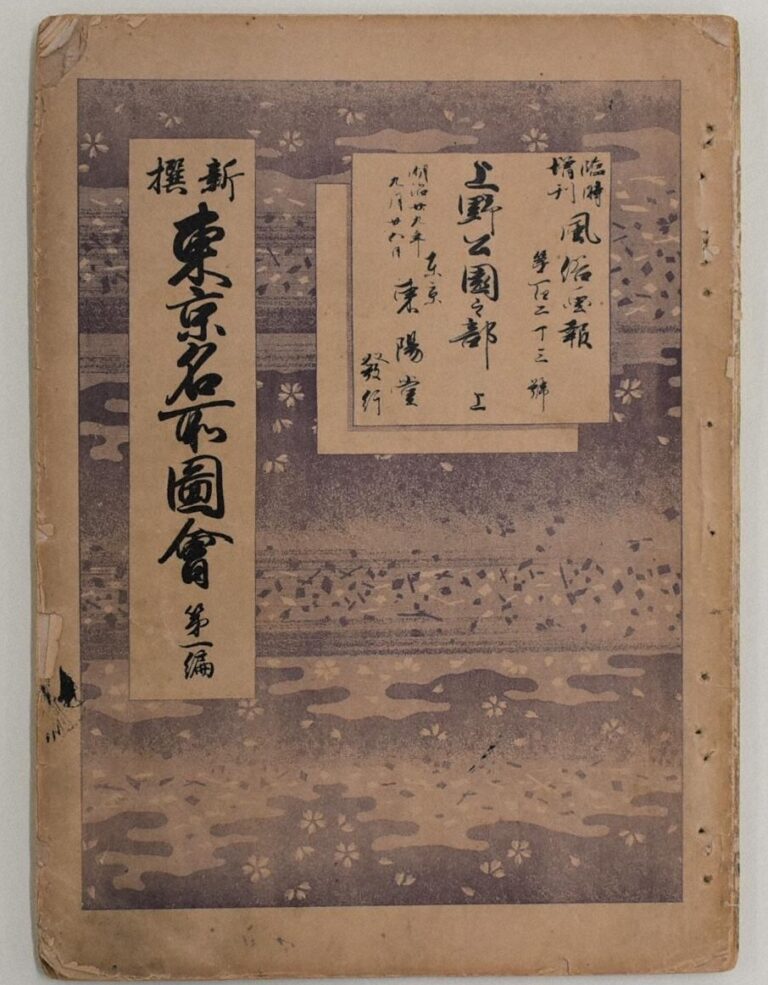 臨時
増刊
風俗画報
第百二十三號
上野公園之部 上
明治廿九年
九月廿五日
東京
東陽堂
發行
新撰
東京名所圖會 第一編